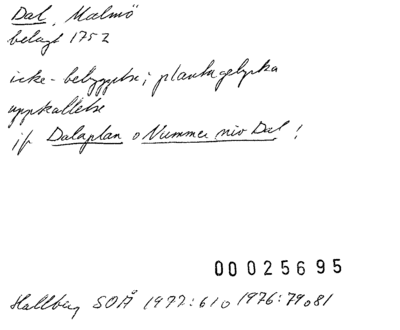 Dal, Malmö
belagt 1752
icke-bebyggelse; plantagelycka
uppkallelse
jfr Dalaplan o Nummer nio Dal!
00 025695
Hallberg SOÅ 1972:61 o 1976:79 o 81